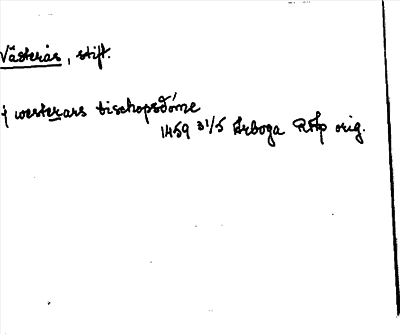 Västerås, stift.
j westerars bischopsdöme
1459 31/5 Arboga RAp orig.